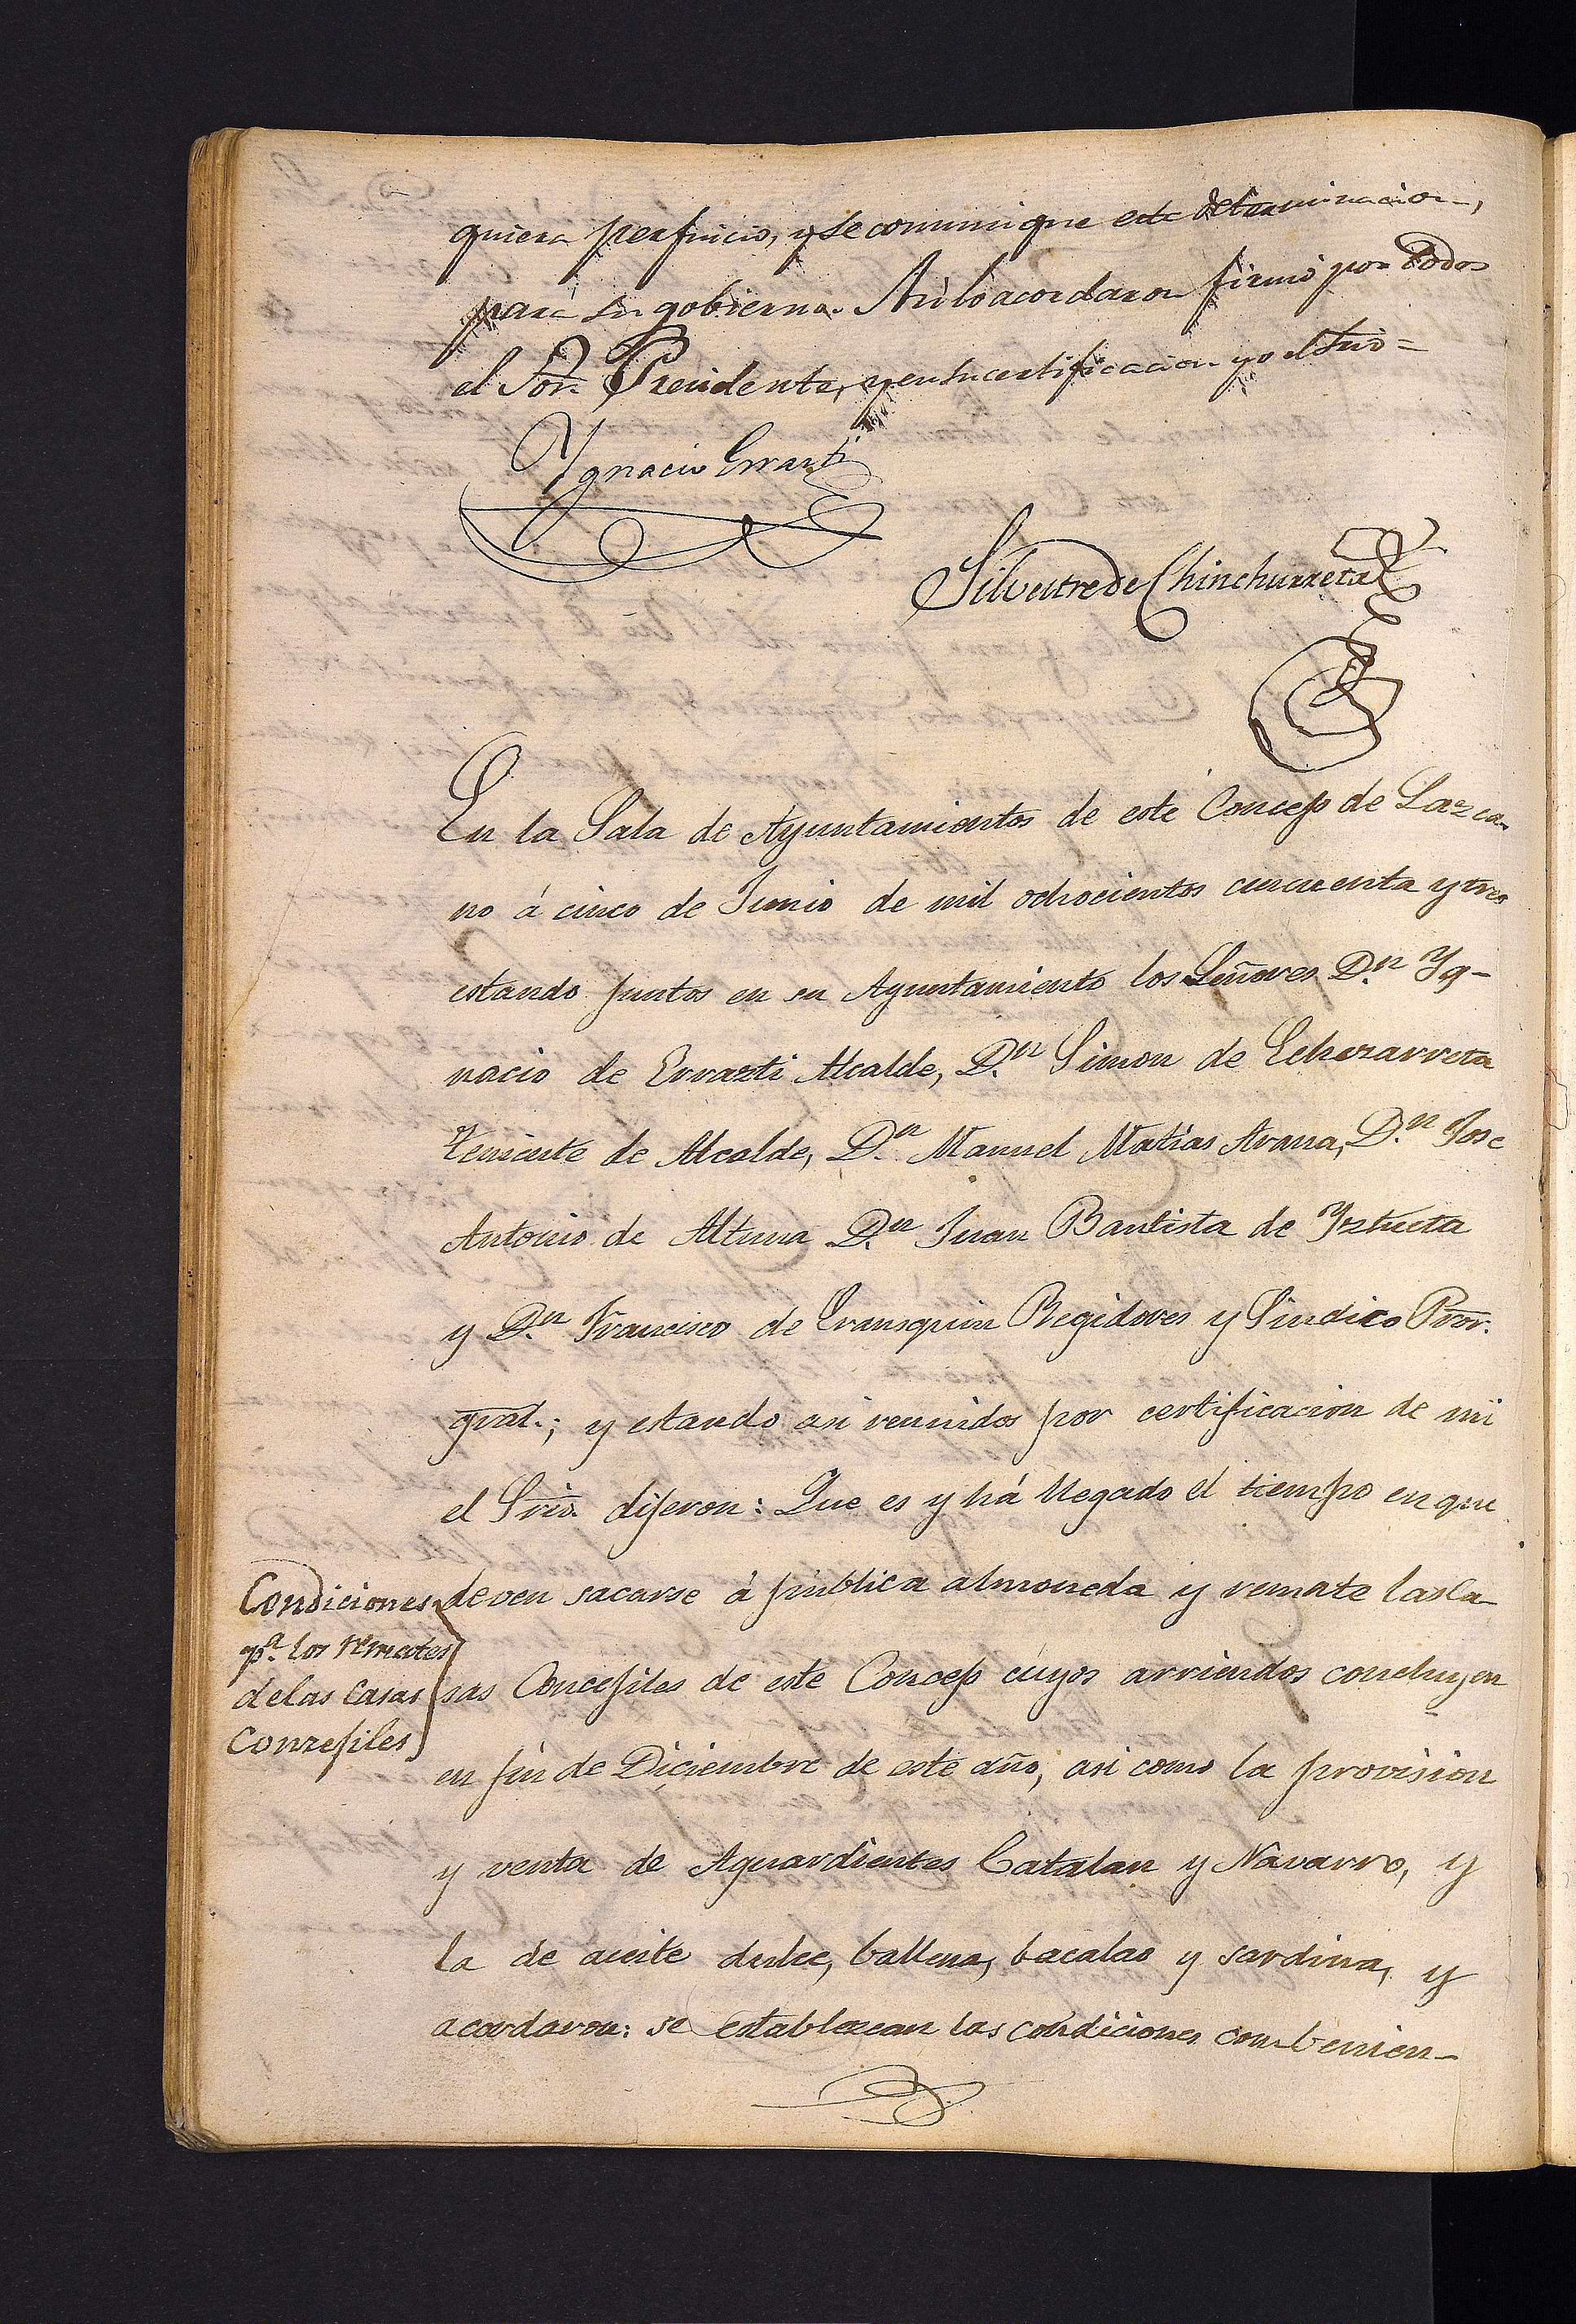 quiera perjuicio, y se comunique esta determinacion,
para su gobierno. Asi lo acordaron firmó por todos
el Sor. Presidente, y en su certificacion yo el Srio=
Ygnacio Errazti
Silvestre de Chinchurreta
En la Sala de Ayuntamientos de este Concejo de Lazca-
no á cinco de Junio de mil ochocientos cincuenta y tres
estando juntos en su Ayuntamiento los Señores D.n Yg-
nacio de Errazti Alcalde, D.n Simon de Echezarreta
Teniente de Alcalde, D.n Manuel Matias Arana, D.n Jose
Antonio de Altuna D.n Juan Bautista de Yztueta
y D.n Francisco de Eransquin Regidores y Sindico Pror.
gral.; y estando asi reunidos por certificacion de mi
el Srio. dijeron: Que es y há llegado el tiempo en que
Condiciones
pª. los remates
de las casas
conzejiles
deven sacarse á publica almoneda y remate las Ca-
sas Concejiles de este Concejo cuyos arriendos concluyen
en fin de Diciembre de este año, asi como la provision
y venta de Aguardientes Catalan y Navarro, y
la de aceite dulce, ballena, bacalao y sardina, y
acordaron: se establezcan las condiciones combenien-